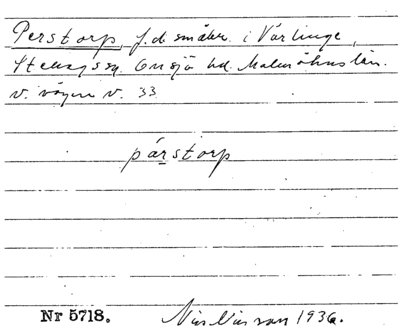 Perstorp, f.d. småbr. i Värlinge,
Stenagssa. Onsjö hd. Malmöhus län.
v. vägen v. 33
pårstorp
Nr 5718. Nils Nilsson 1936.